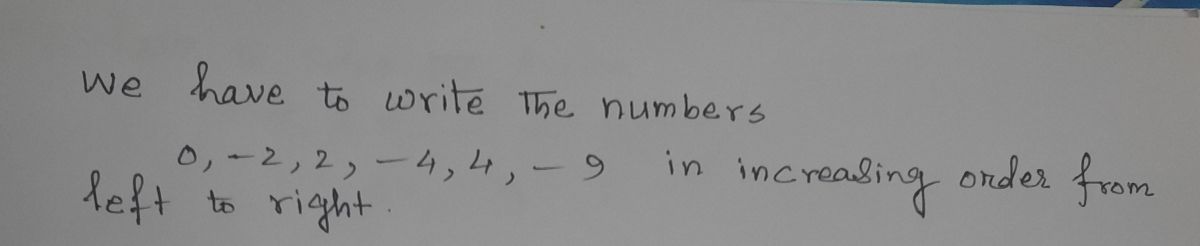 We have to write The numbers
0, -2, 2, -4, 4, - 9 in increasing order from
left to right.